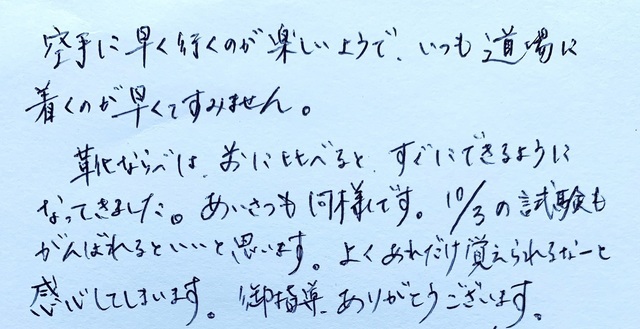 空手に早く行くのが楽しいようで、いつも道場に
着くのが早くてすみません。
靴ならべは、前に比べると、すぐにできるように
なってきました。あいさつも同様です。10/3の試験も
がんばれるといいと思います。よくあれだけ覚えられるなーと
感心してしまいます。御指導、ありがとうございます。